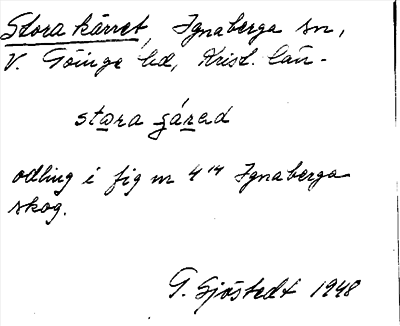 Stora kärret, Ignaberga sn,
V. Göinge hd, Krist. län.
stora gáred
odling i fig nr 4¹⁴ Ignaberga
skog.
G. Sjöstedt 1948